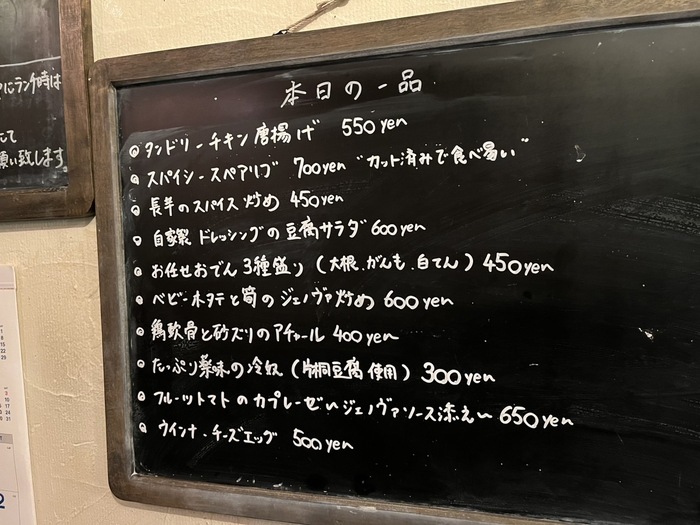 にランチ時は
して
願い致します
本日の一品
◎ タンドリーチキン唐揚げ 550yen
◎ スパイシースペアリブ 700yen "カット済みで食べ易い"
◎ 長芋のスパイス炒め 450yen
◎ 自家製ドレッシングの豆腐サラダ 600yen
◎ お任せおでん3種盛り(大根、がんも、白てん) 450yen
◎ ベビーホタテと筍のジェノヴァ炒め 600yen
◎ 鶏軟骨と砂ズリのアチャール 400yen
◎ たっぷり薬味の冷奴(片桐豆腐使用) 300yen
◎ フルーツトマトのカプレーゼ〜ジェノヴァソース添え〜 650yen
◎ ウインナーチーズエッグ 500yen